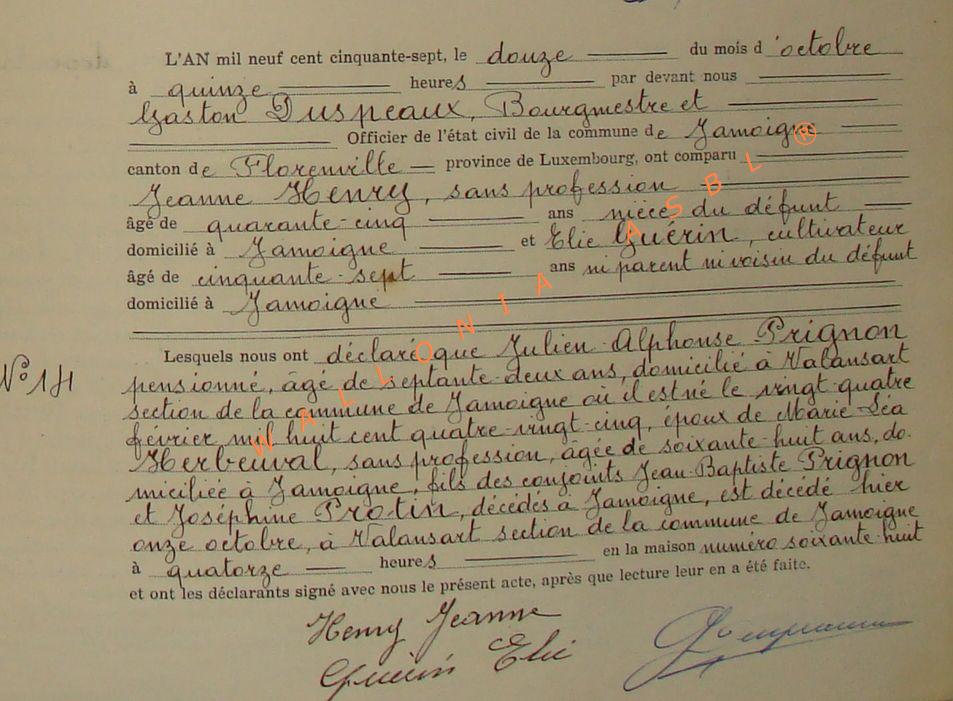 L'AN mil neuf cent cinquante-sept, le douze du mois d'octobre
à quinze heures par devant nous
Gaston Duspeaux, Bourgmestre et
Officier de l'état civil de la commune de Jamoigne
canton de Florenville province de Luxembourg, ont comparu
Jeanne Henry, sans profession
âgé de quarante-cinq ans nièce du défunt
domicilié à Jamoigne et Elie Guérin, cultivateur
âgé de cinquante-sept ans ni parent ni voisin du défunt
domicilié à Jamoigne
N° 14
Lesquels nous ont déclaré que Julien-Alphonse Prignon
pensionné, âgé de septante-deux ans, domicilié à Valansart
section de la commune de Jamoigne où il est né le vingt-quatre
février mil huit cent quatre-vingt-cinq, époux de Marie-Léa
Herbeuval, sans profession, âgée de soixante-huit ans, do-
miciliée à Jamoigne, fils des conjoints Jean-Baptiste Prignon
et Joséphine Protin, décédés à Jamoigne, est décédé hier
onze octobre, à Valansart section de la commune de Jamoigne
à quatorze heures en la maison numéro soixante-huit
et ont les déclarants signé avec nous le présent acte, après que lecture leur en a été faite.
Henry Jeanne
Guérin Elie
WALLONIA ASBL ®